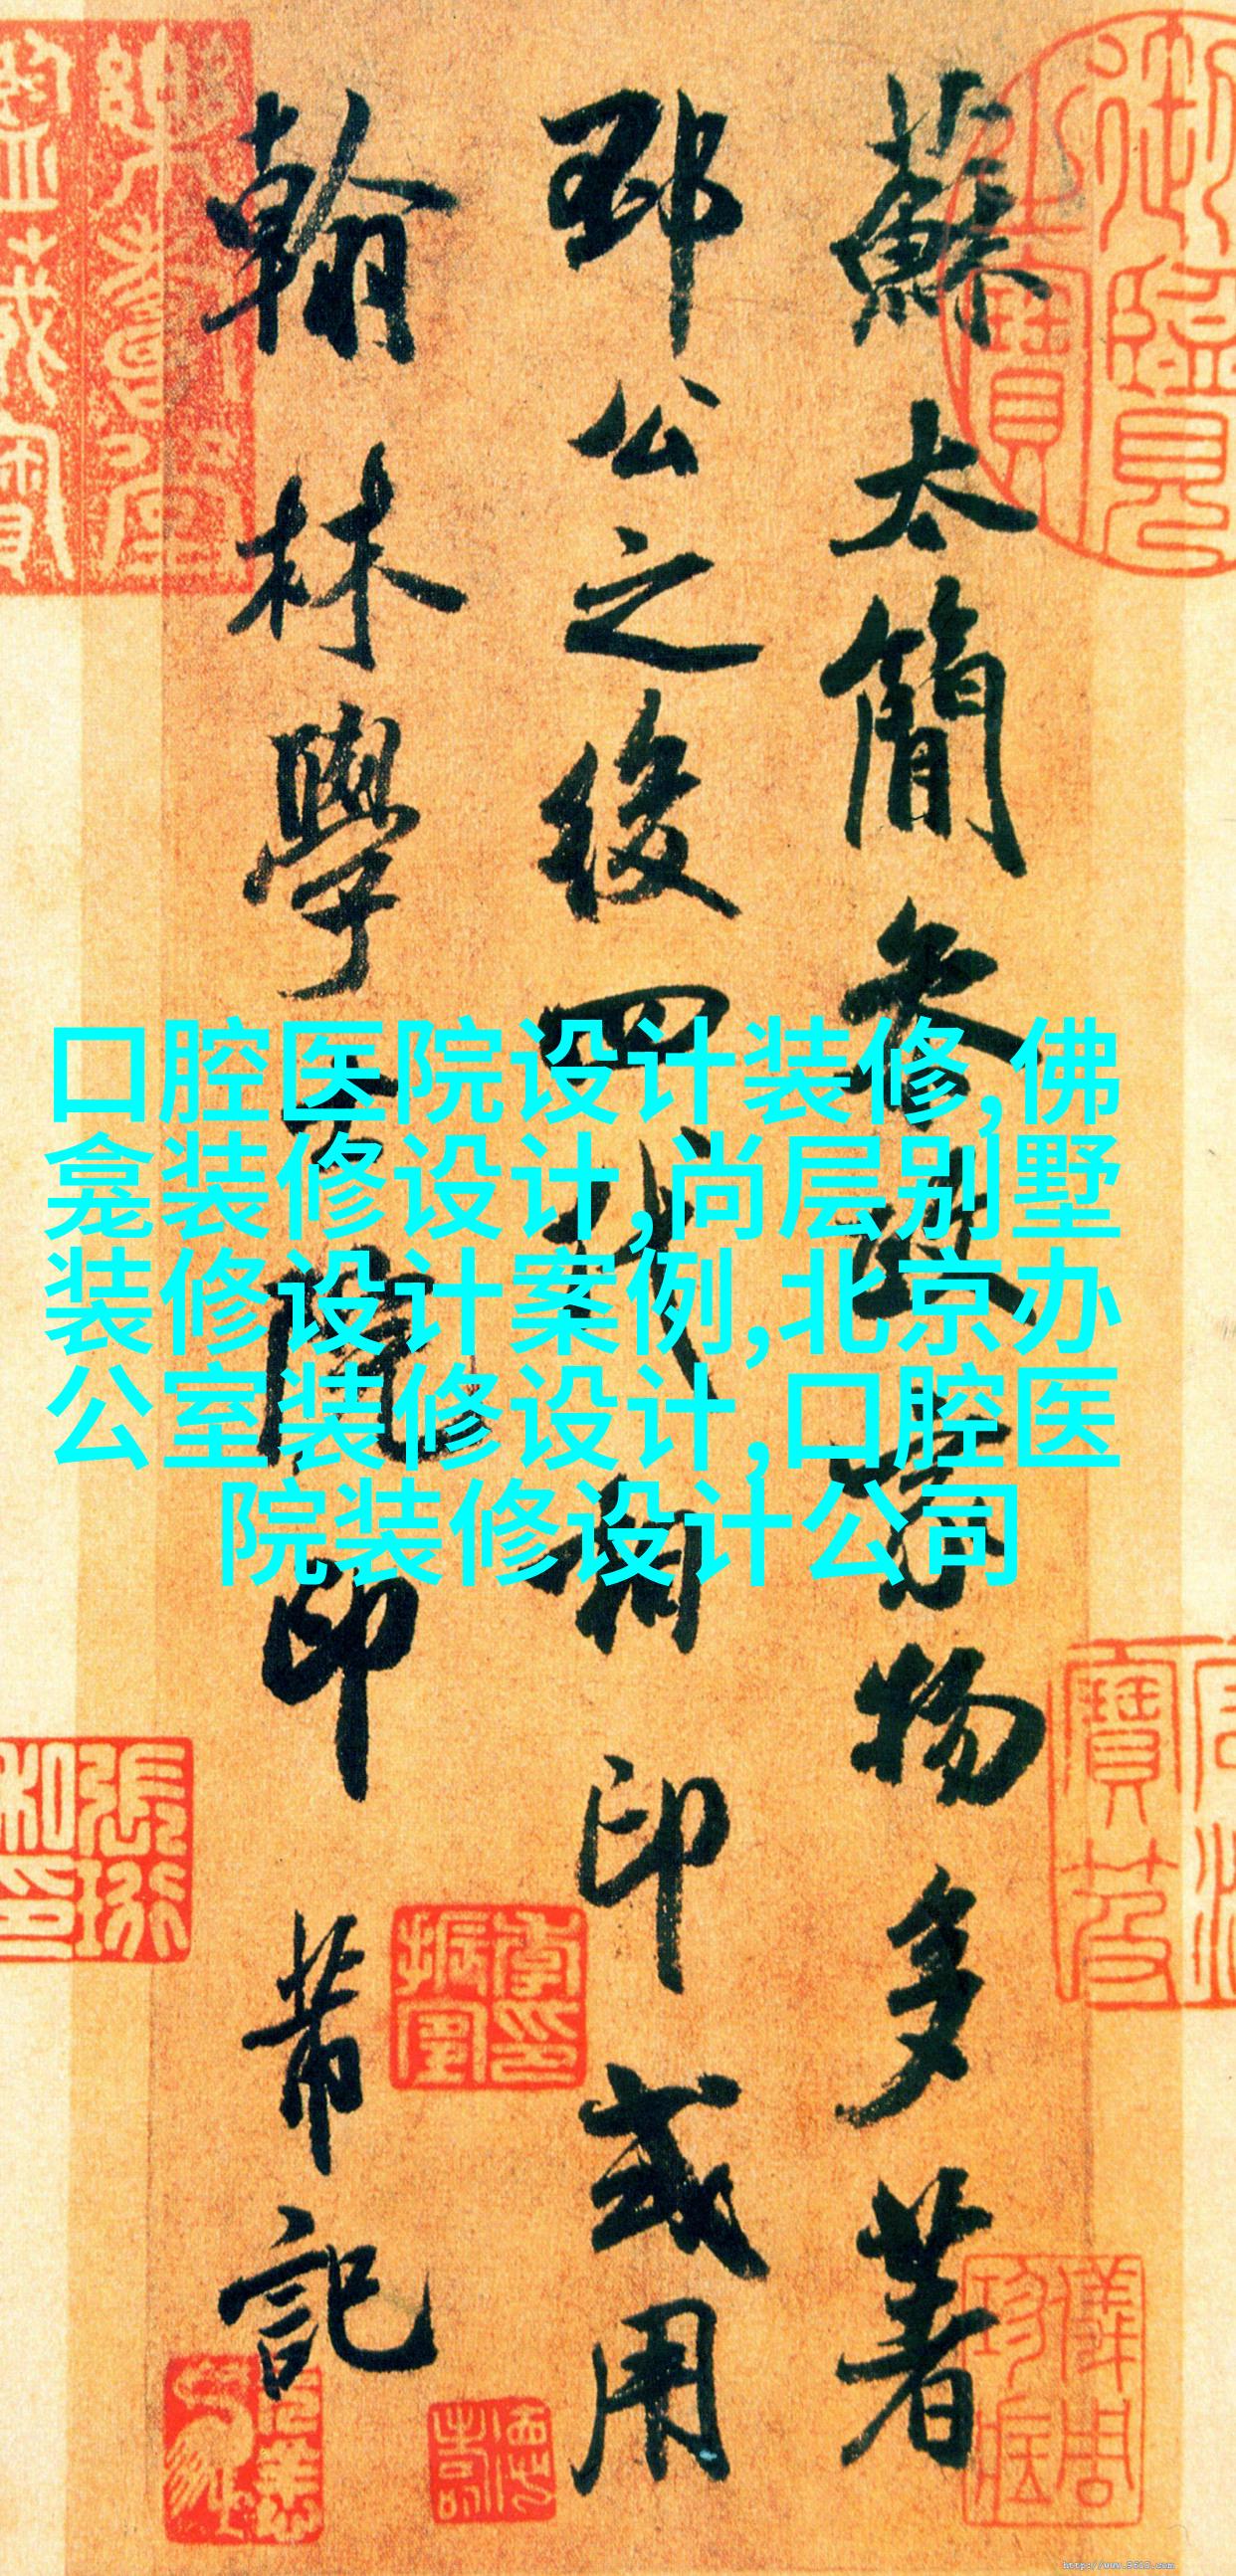 蘇太簡參政家物多著
邳公之後四代相印或用
翰林學士院印 芾記
口腔医院设计装修,佛
龛装修设计,尚层别墅
装修设计案例,北京办
公室装修设计,口腔医
院装修设计公司
http://www.9610.com